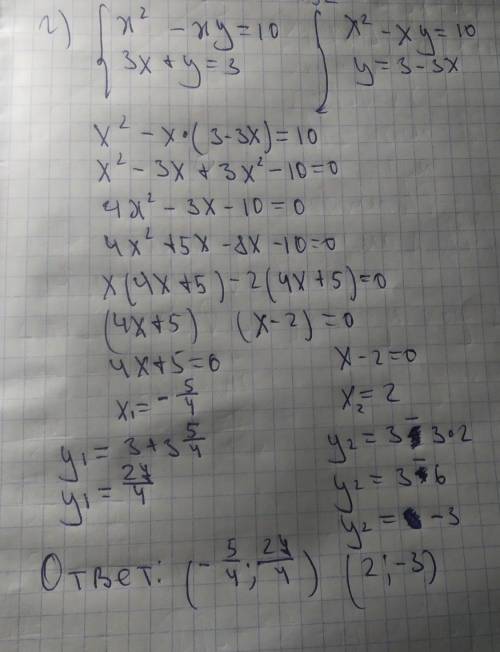 г) { x² - xy = 10   { x² - xy = 10
3x + y = 3   y = 3 - 3x
x² - x·(3 - 3x) = 10
x² - 3x + 3x² - 10 = 0
4x² - 3x - 10 = 0
4x² + 5x - 8x - 10 = 0
x(4x + 5) - 2(4x + 5) = 0
(4x + 5)   (x - 2) = 0
4x + 5 = 0   x - 2 = 0
x₁ = - 5/4   x₂ = 2
y₁ = 3 + 3 5/4   y₂ = 3 - 3·2
y₁ = 27/4   y₂ = 3 - 6
y₂ = -3
Ответ: (- 5/4; 27/4)   (2; -3)